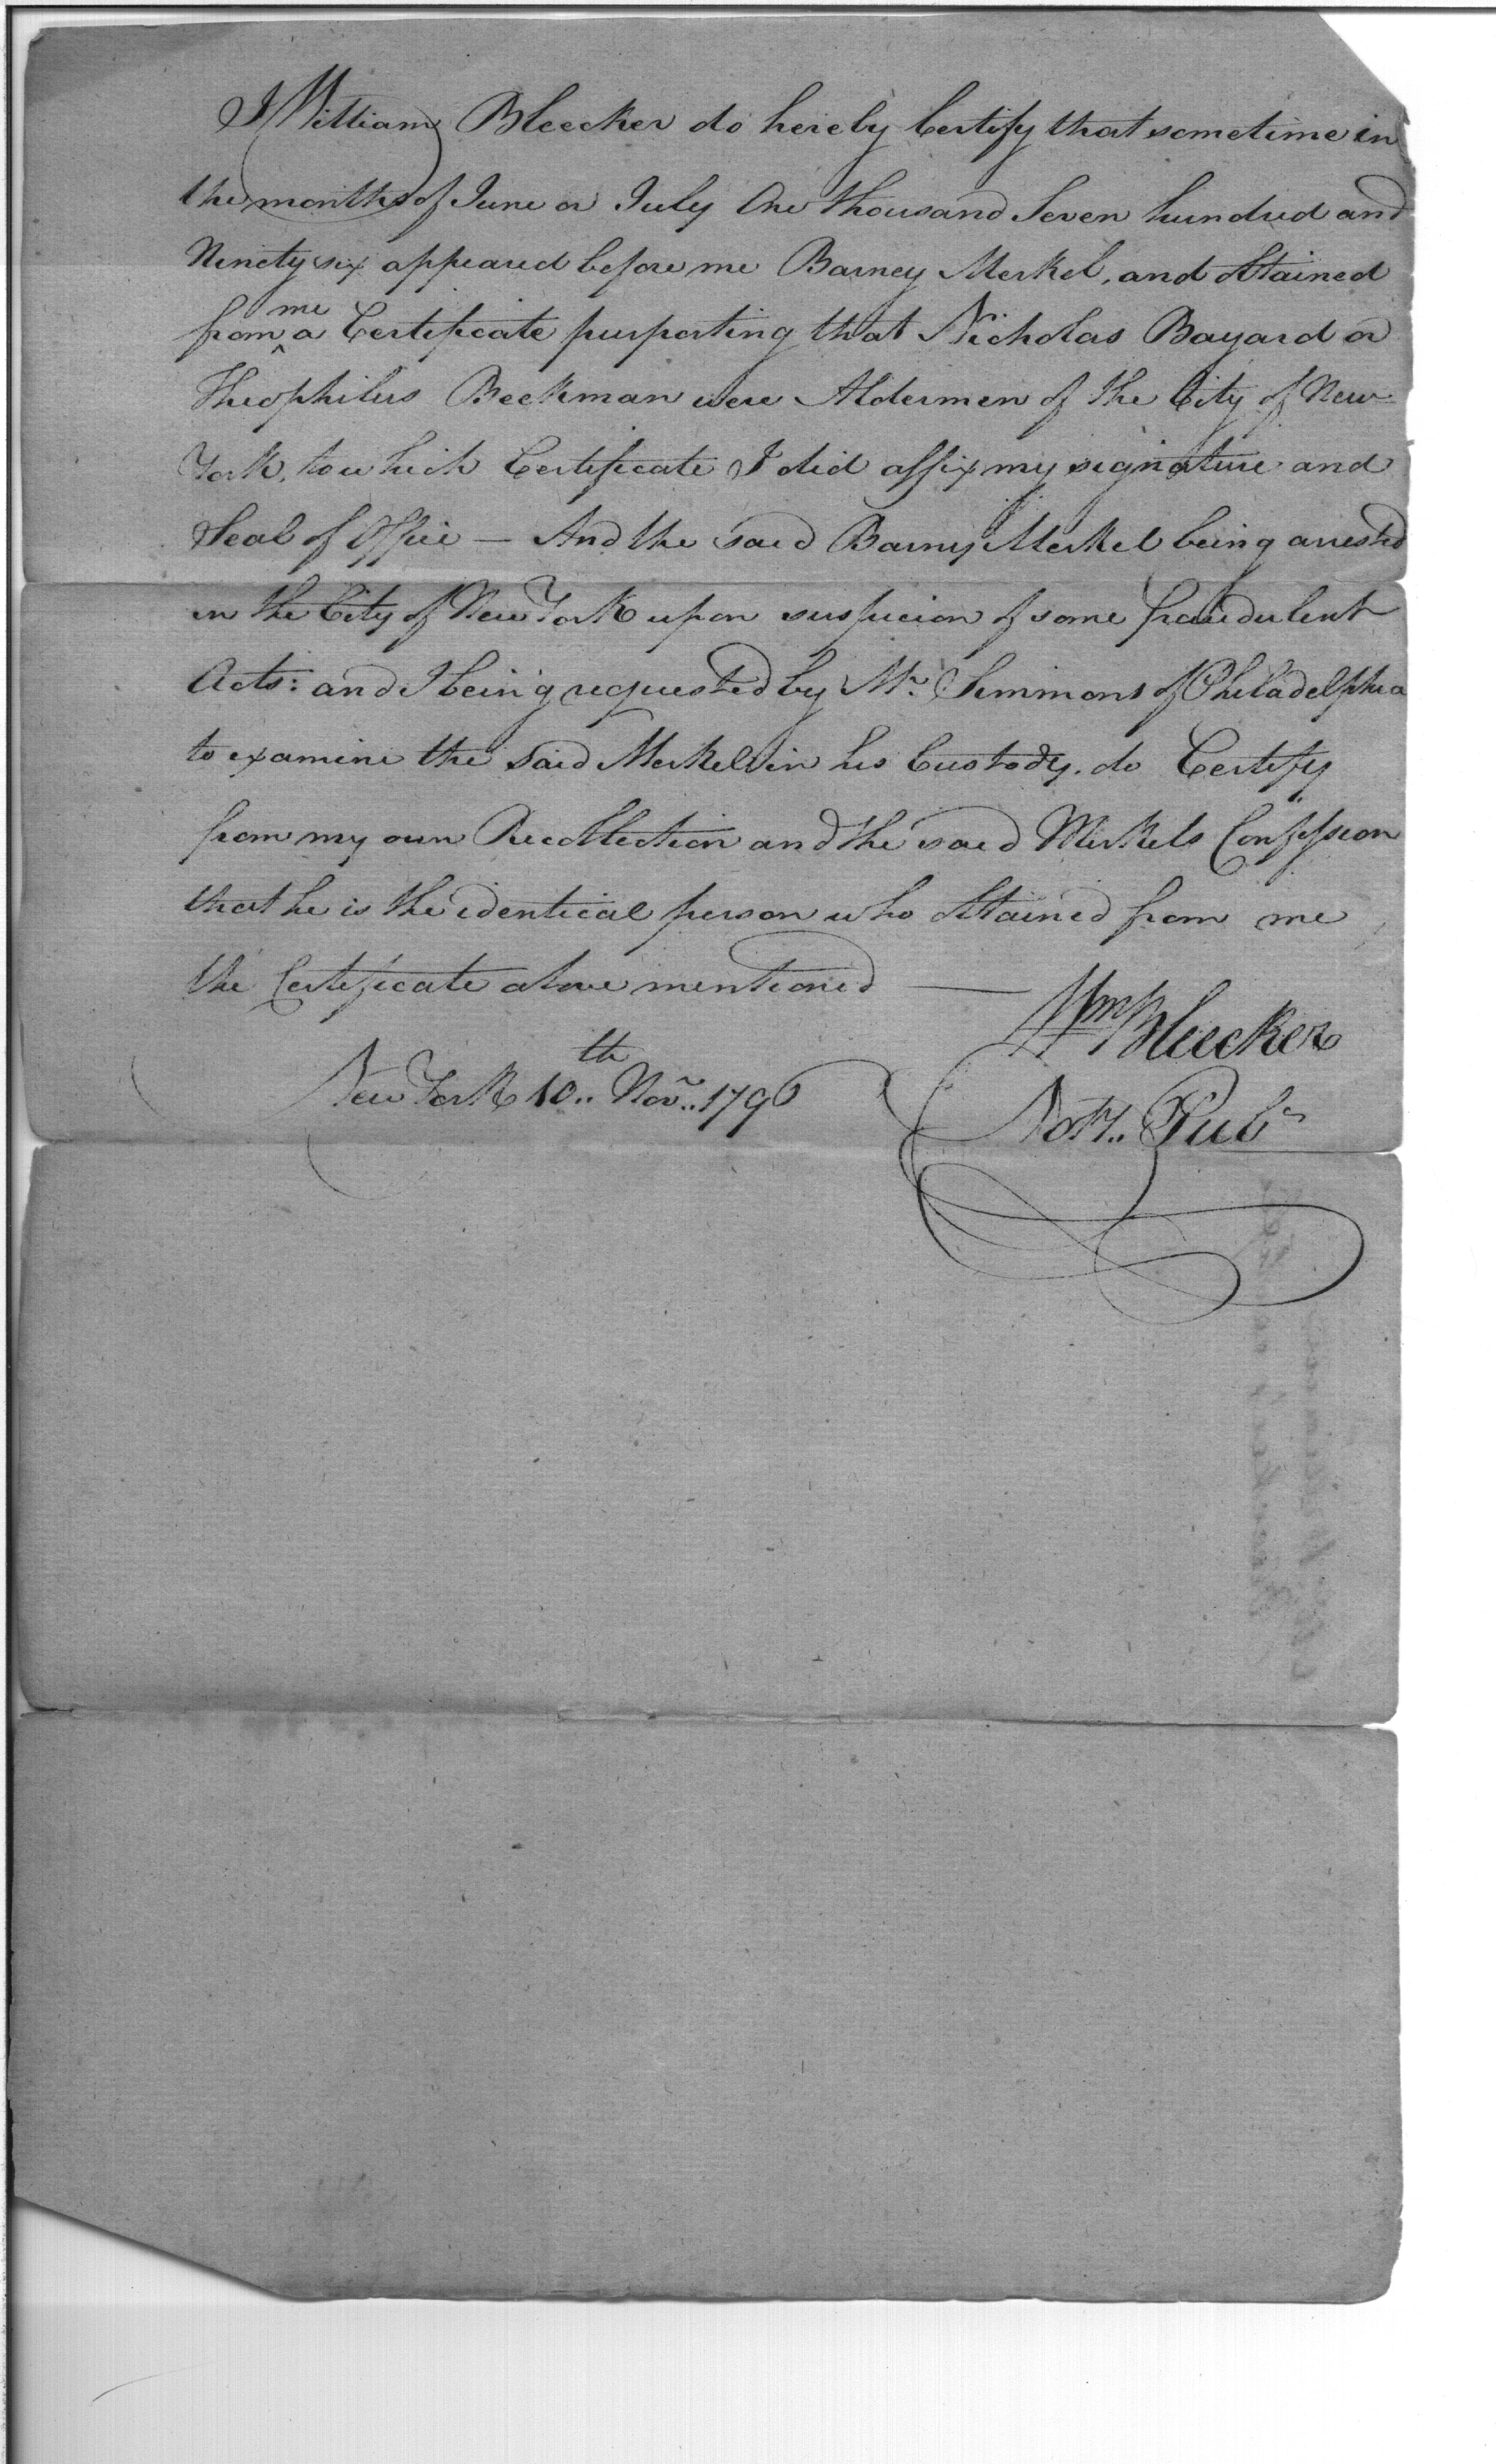 I William Bleecker do hereby Certify that sometime in
the months of June or July One thousand Seven hundred and
Ninety six appeared before me Barney Merkel, and obtained
me
from ^ a Certificate purporting that Nicholas Bayard or
Theophilus Beekman were Aldermen of the City of New
York, to which Certificate I did affix my signature and
Seal of Office — And the said Barney Merkel being arrested
in the City of New York upon suspicion of some fraudulent
Acts: and I being requested by Mr. Simmons of Philadelphia
to examine the said Merkel in his Custody, do Certify
from my own Recollection and the said Merkels Confession
that he is the identical person who obtained from me
the Certificate above mentioned —
Wm Bleecker
New York 10th Novr. 1796
Noty. Pubc